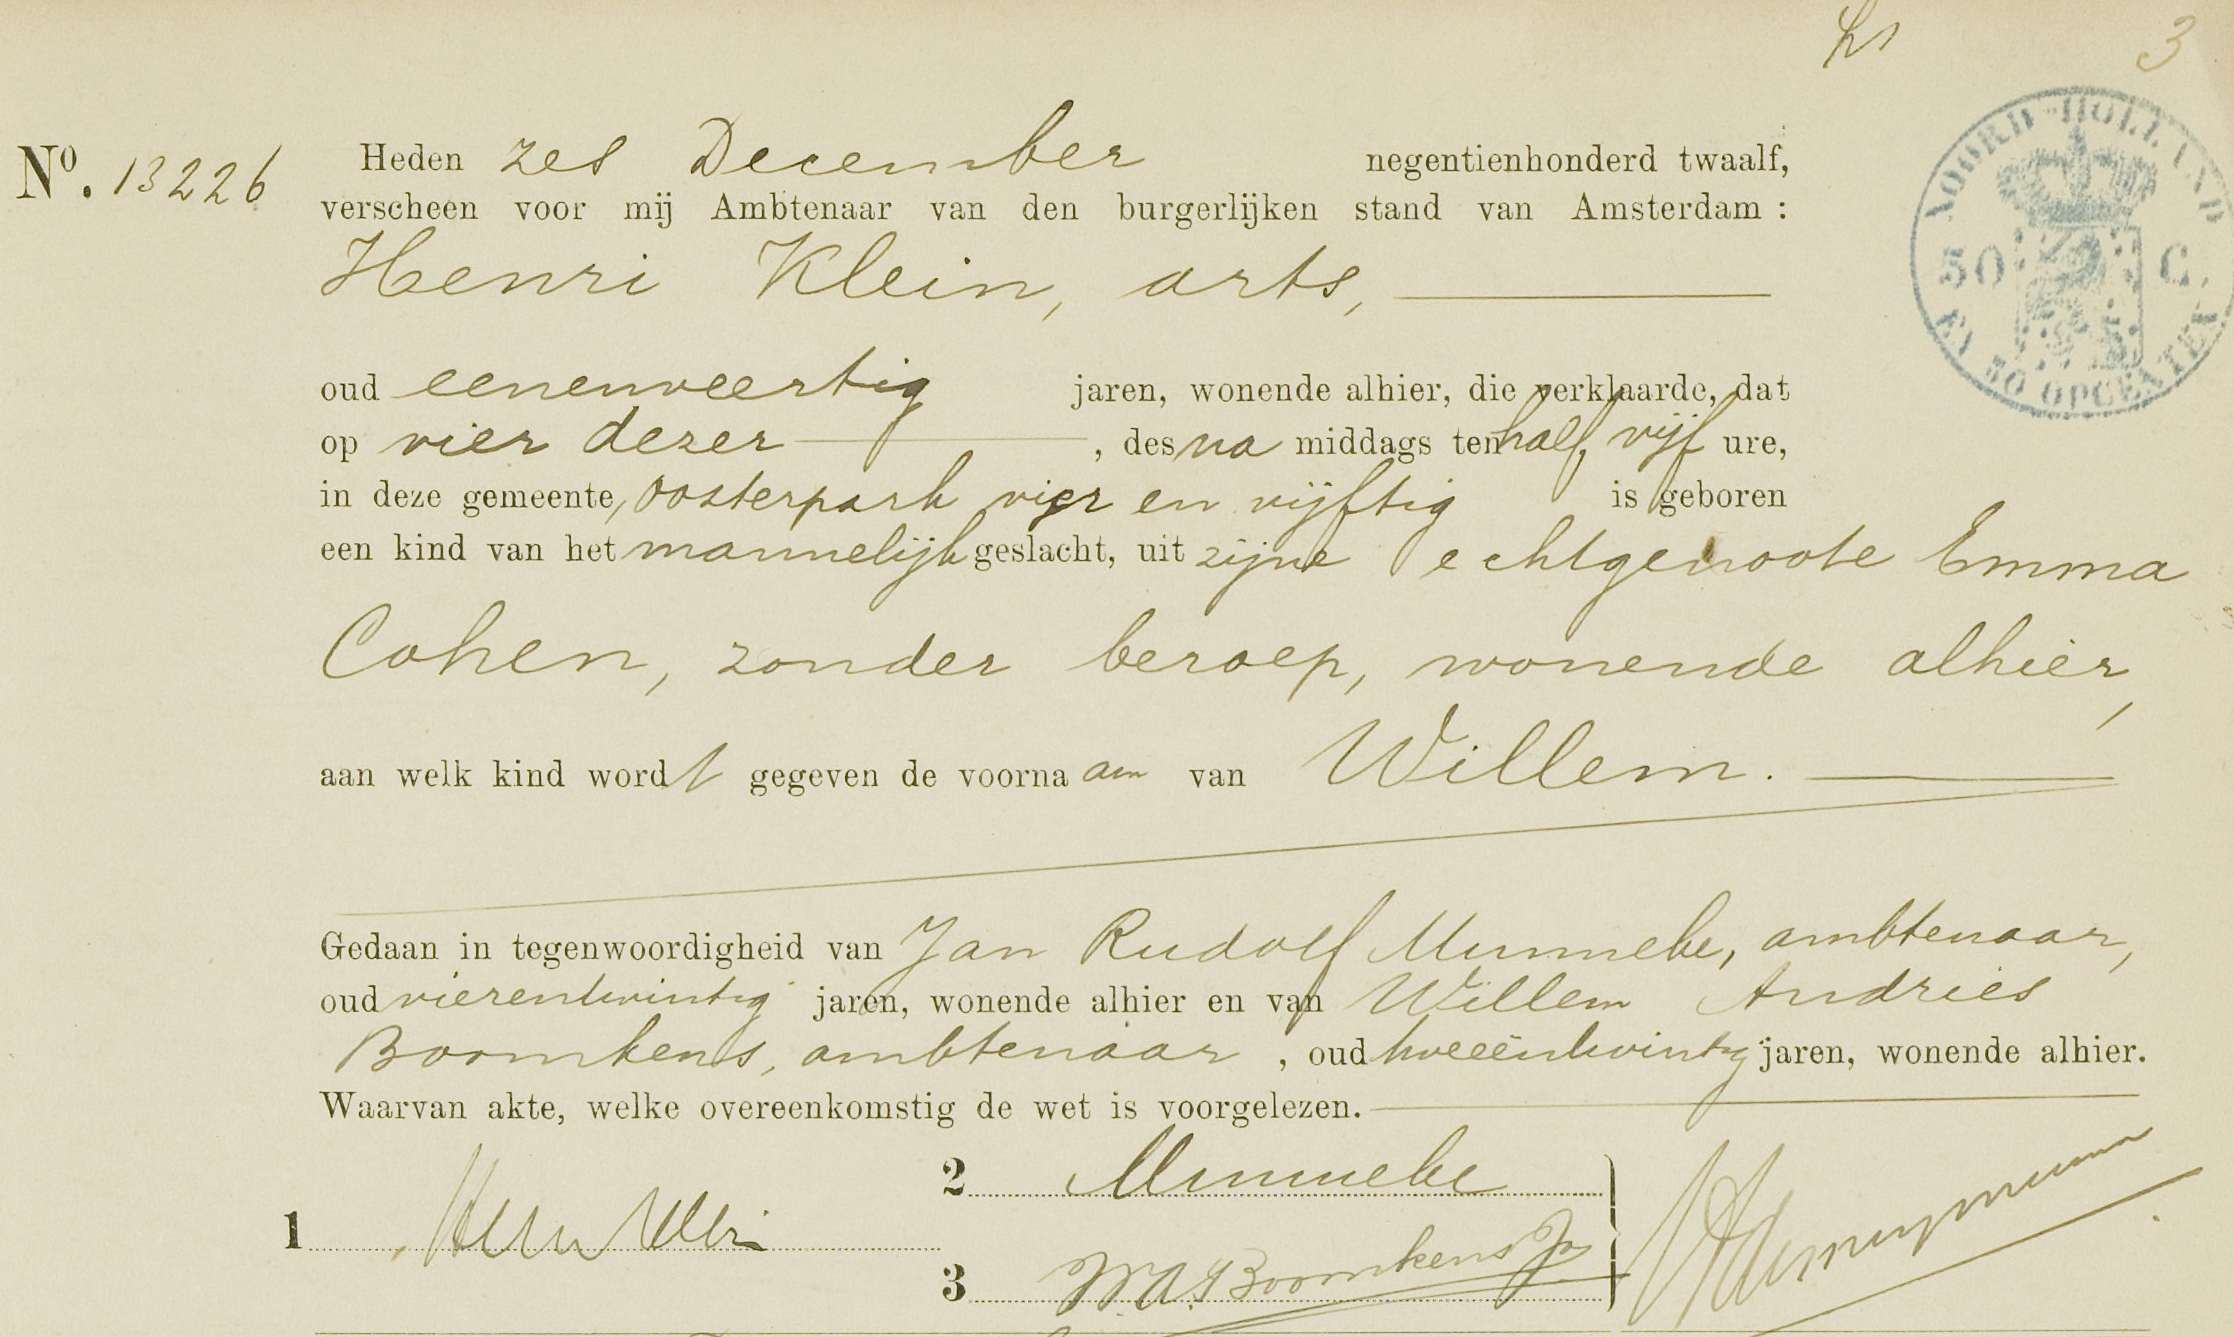 3
Nº. 13226
Heden zes December negentienhonderd twaalf,
verscheen voor mij Ambtenaar van den burgerlijken stand van Amsterdam :
Henri Klein, arts,
oud eenenveertig jaren, wonende alhier, die verklaarde, dat
op vier dezer , des na middags ten half vijf ure,
in deze gemeente, Oosterpark vier en vijftig is geboren
een kind van het mannelijk geslacht, uit zijne echtgenoote Emma
Cohen, zonder beroep, wonende alhier,
aan welk kind wordt gegeven de voornaam van Willem.
Gedaan in tegenwoordigheid van Jan Rudolf Munneke, ambtenaar,
oud vierentwintig jaren, wonende alhier en van Willem Andries
Boomkens, ambtenaar , oud tweeëntwintig jaren, wonende alhier.
Waarvan akte, welke overeenkomstig de wet is voorgelezen.
1 Henri Klein
2 Munneke
3 W.A. Boomkens Jr
NOORD-HOLLAND
50 C.
EN 50 OPCENTEN